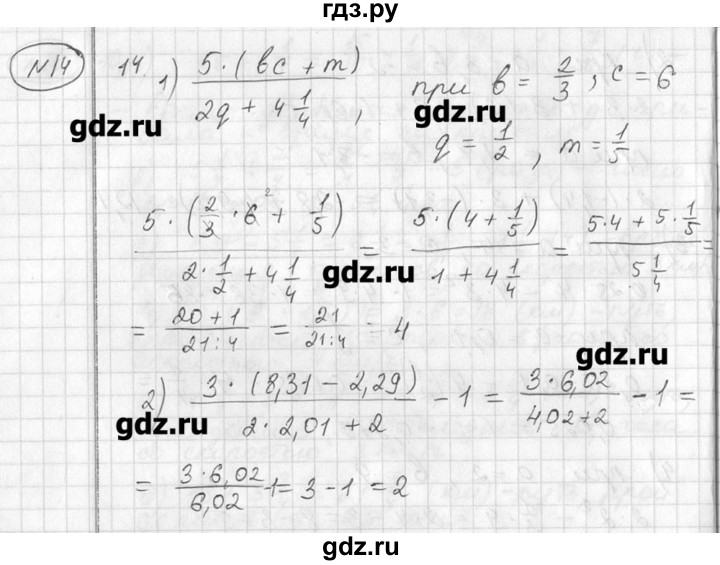 гдз.ру
№14
14. 1) 5·(bc + m) / 2q + 4 1/4 , при b = 2/3, c = 6
gdz.ru gdz.ru
q = 1/2, m = 1/5
5·(2/3 · 6² + 1/5) / 2·1/2 + 4 1/4 = 5·(4 + 1/5) / 1 + 4 1/4 = 5·4 + 5·1/5 / 5 1/4 =
gdz.ru
= 20 + 1 / 21:4 = 21 / 21:4 = 4
gdz.ru
2) 3·(8,31 − 2,29) / 2·2,01 + 2 − 1 = 3·6,02 / 4,02+2 − 1 =
gdz.ru
= 3·6,02 / 6,02 − 1 = 3 − 1 = 2
gdz.ru